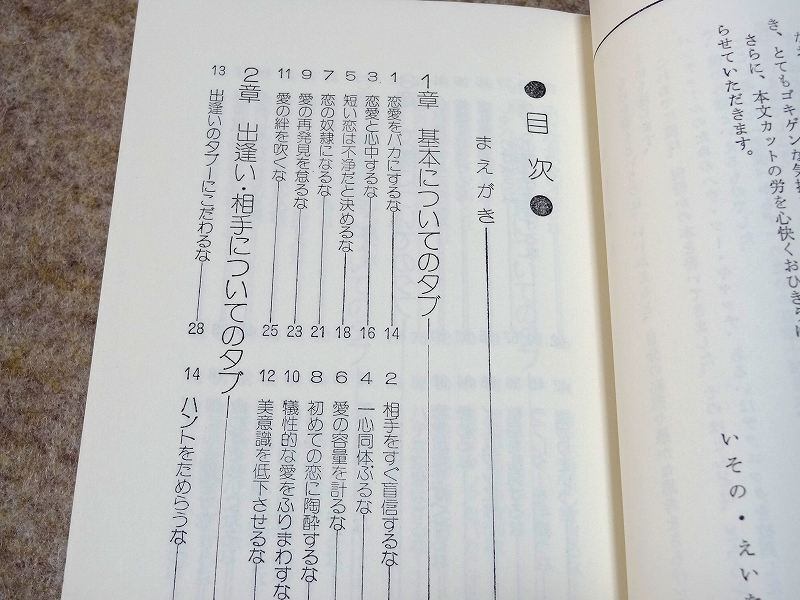 き、とてもゴキゲンな気持
さらに、本文カットの労を心快くおひきらけ
らせていただきます。
いその・えい
●目次●
まえがき
1章 基本についてのタブー
1 恋愛をバカにするな 14
2 相手をすぐ盲信するな
3 恋愛と心中するな 16
4 一心同体ぶるな
5 短い恋は不浄だと決めるな 18
6 愛の容量を計るな
7 恋の奴隷になるな 21
8 初めての恋に陶酔するな
9 愛の再発見を怠るな 23
10 犠性的な愛をふりまわすな
11 愛の絆を吹くな 25
12 美意識を低下させるな
2章 出逢い・相手についてのタブー
13 出逢いのタブーにこだわるな 28
14 ハントをためらうな